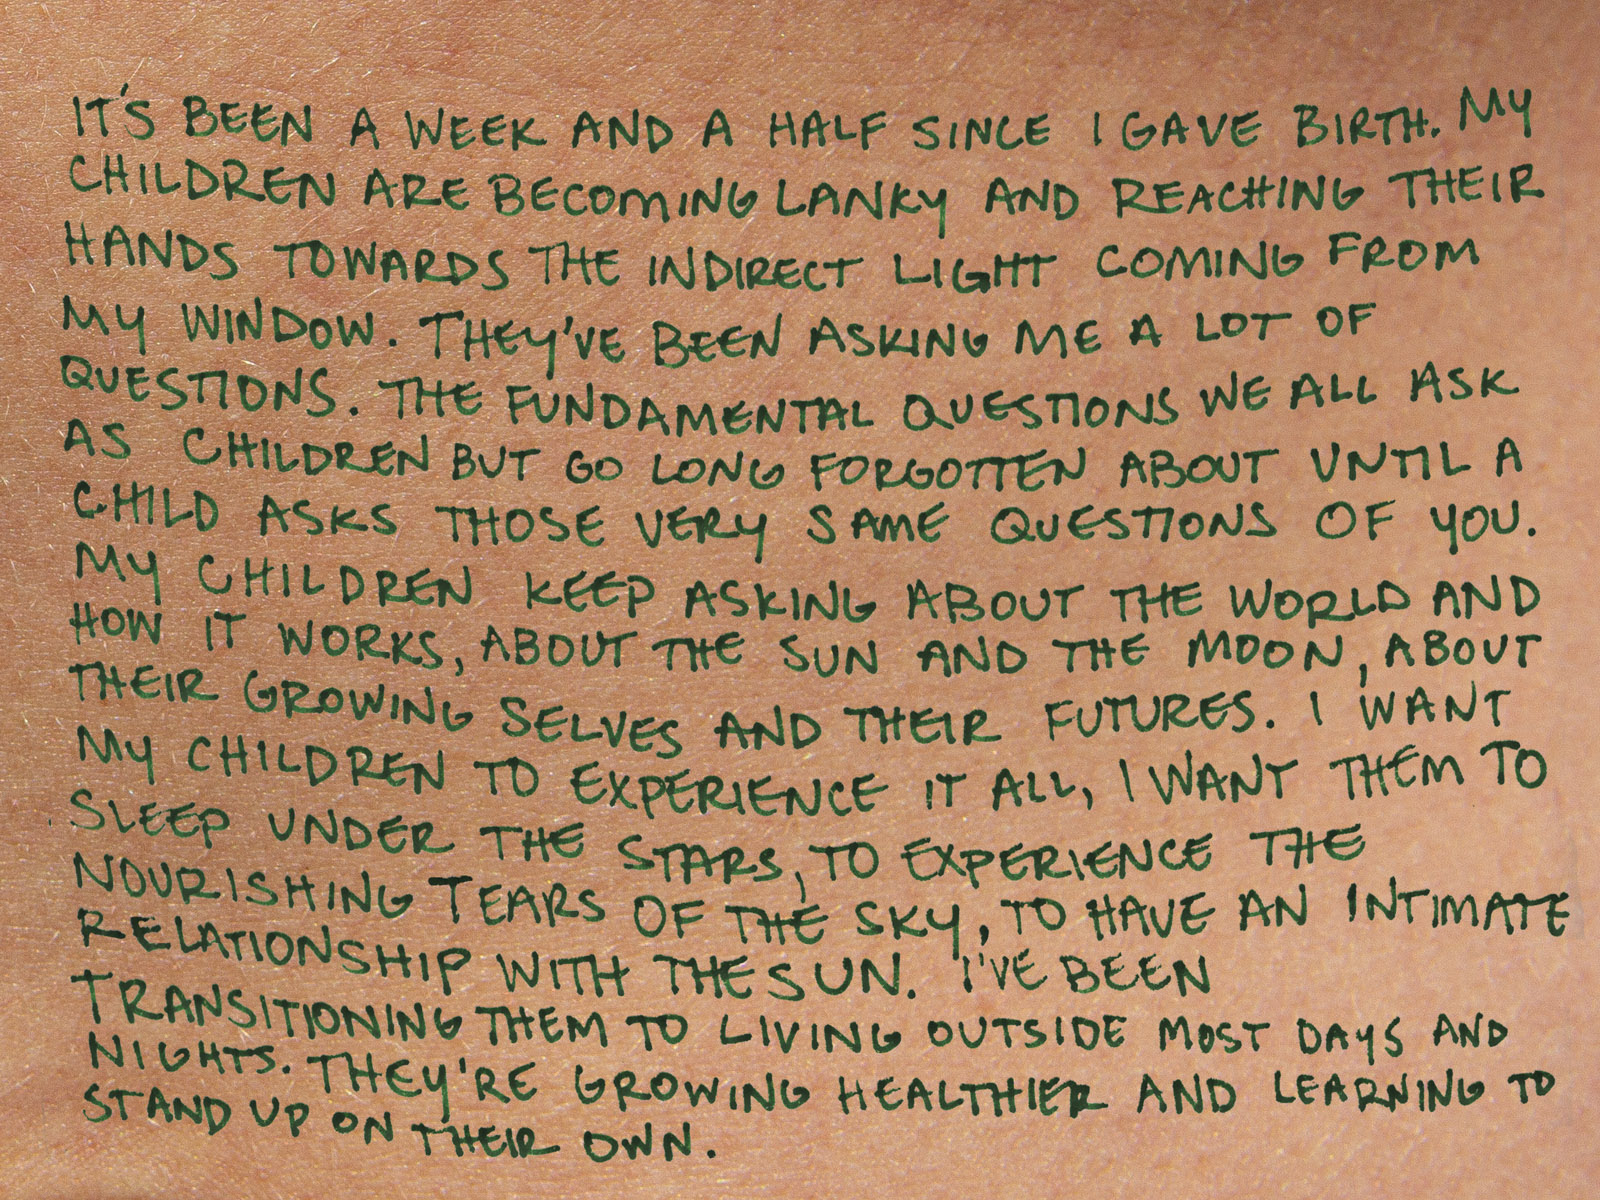 IT'S BEEN A WEEK AND A HALF SINCE I GAVE BIRTH. MY
CHILDREN ARE BECOMING LANKY AND REACHING THEIR
HANDS TOWARDS THE INDIRECT LIGHT COMING FROM
MY WINDOW. THEY'VE BEEN ASKING ME A LOT OF
QUESTIONS. THE FUNDAMENTAL QUESTIONS WE ALL ASK
AS CHILDREN BUT GO LONG FORGOTTEN ABOUT UNTIL A
CHILD ASKS THOSE VERY SAME QUESTIONS OF YOU.
MY CHILDREN KEEP ASKING ABOUT THE WORLD AND
HOW IT WORKS, ABOUT THE SUN AND THE MOON, ABOUT
THEIR GROWING SELVES AND THEIR FUTURES. I WANT
MY CHILDREN TO EXPERIENCE IT ALL, I WANT THEM TO
SLEEP UNDER THE STARS, TO EXPERIENCE THE
NOURISHING TEARS OF THE SKY, TO HAVE AN INTIMATE
RELATIONSHIP WITH THE SUN. I'VE BEEN
TRANSITIONING THEM TO LIVING OUTSIDE MOST DAYS AND
NIGHTS. THEY'RE GROWING HEALTHIER AND LEARNING TO
STAND UP ON THEIR OWN.